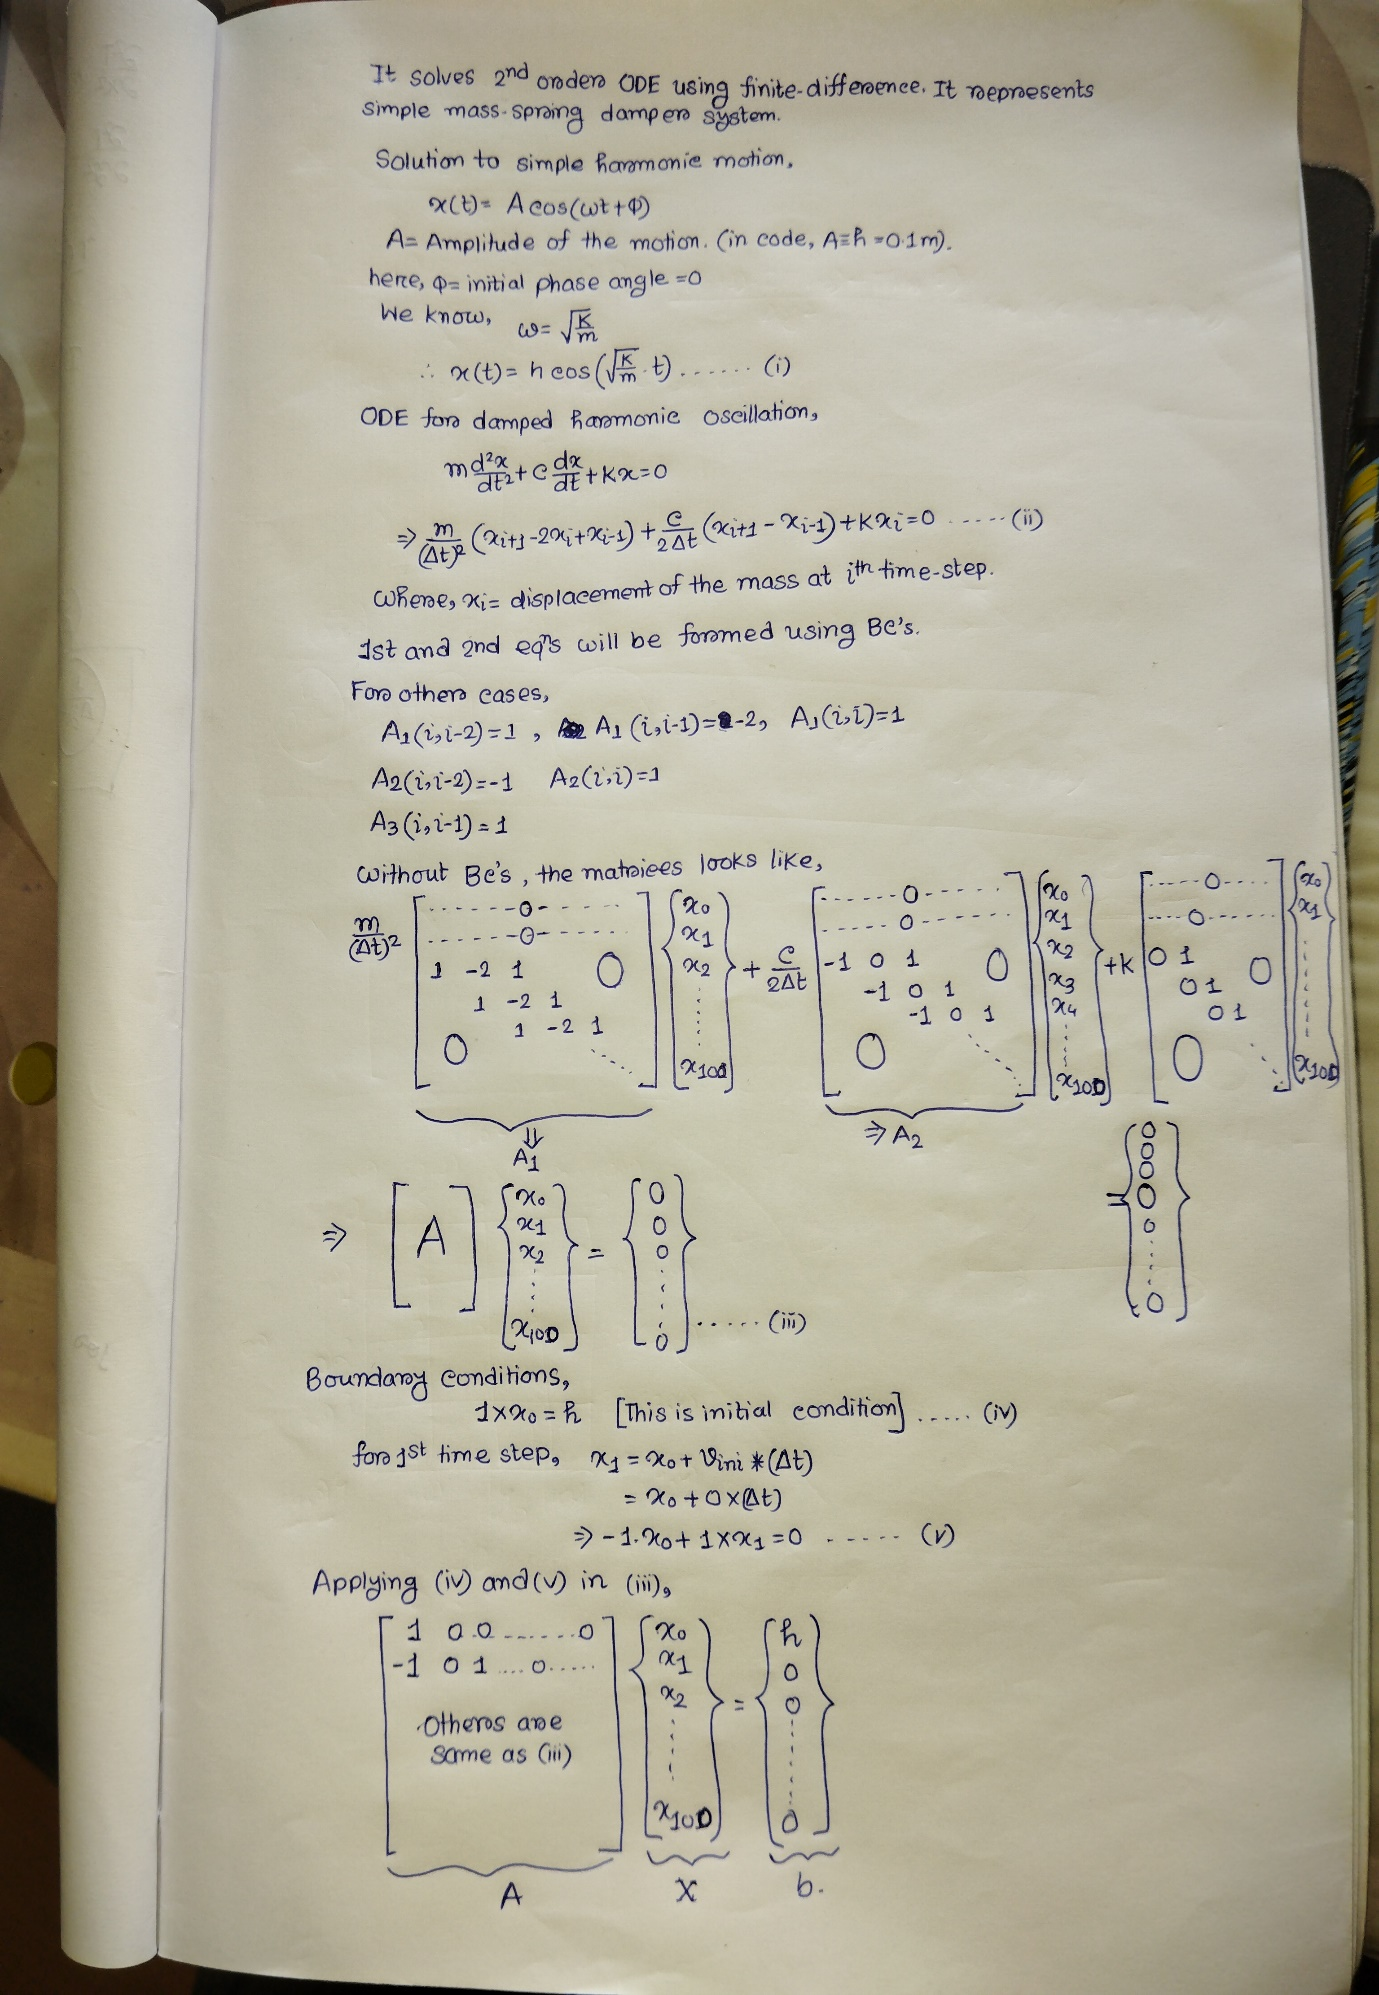 It solves 2nd order ODE using finite-difference. It represents
simple mass-spring damper system.
Solution to simple harmonic motion,
x(t) = A cos(ωt+φ)
A = Amplitude of the motion. (in code, A≡h = 0.1m).
here, φ = initial phase angle = 0
We know, ω = √(K/m)
∴ x(t) = h cos(√(K/m) · t) ....... (i)
ODE for damped harmonic oscillation,
m d²x/dt² + c dx/dt + Kx = 0
⇒ m/(Δt)² (xi+1 - 2xi + xi-1) + c/2Δt (xi+1 - xi-1) + Kxi = 0 ..... (ii)
where, xi = displacement of the mass at ith time-step.
1st and 2nd eqns will be formed using BC's.
For other cases,
A1(i,i-2) = 1 , A1(i,i-1) = -2, A1(i,i) = 1
A2(i,i-2) = -1 A2(i,i) = 1
A3(i,i-1) = 1
Without BC's, the matrices looks like,
m/(Δt)² [ ------0------ ] {x0} + c/2Δt [ ------0------ ] {x0} + K [ ----0---- ] {x0}
[ ------0------ ] {x1} [ ------0------ ] {x1} [ ----0---- ] {x1}
1 -2 1 0 x2 -1 0 1 0 x2 0 1 0
1 -2 1 -1 0 1 x3 0 1
1 -2 1 -1 0 1 x4 0 1
0 x100 0 x100 0 x100
⇓ A1 ⇒ A2
= {0 0 0 0 0 ..... 0}
⇒ [A] {x0 x1 x2 ..... x100} = {0 0 0 ..... 0} ..... (iii)
Boundary conditions,
1×x0 = h [This is initial condition] ..... (iv)
for 1st time step, x1 = x0 + Vini * (Δt)
= x0 + 0×(Δt)
⇒ -1.x0 + 1×x1 = 0 ..... (v)
Applying (iv) and (v) in (iii),
1 0 0 ....... 0 x0 h
-1 0 1 .... 0 ..... x1 0
x2 = 0
Others are
same as (iii)
x100 0
A X b.